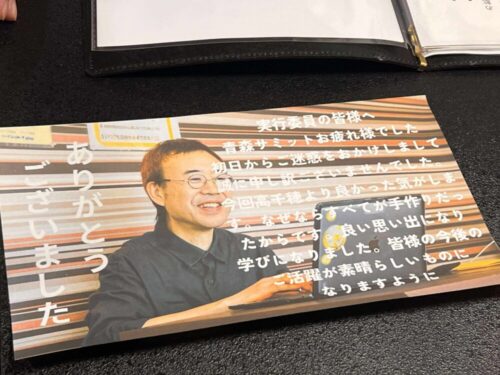 実行委員の皆様へ
青森サミットお疲れ様でした
初日からご迷惑をおかけしまして
誠に申し訳ございませんでした。
今回高千穂より良かった気がしま
す。なぜなら、すべてが手作りだっ
たからです。良い思い出になり
学びになりました。皆様の今後の
ご活躍が素晴らしいものに
なりますように
ありがとう
ございました